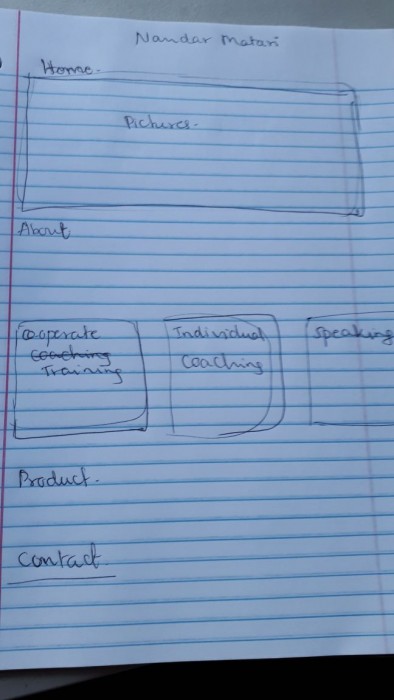 Nandar Matari
Home.
Pictures.
About
Cooperate
coaching
Training
Individual
Coaching
Speaking
Product.
Contact